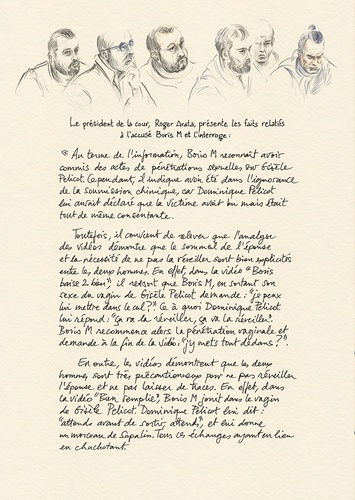 Le président de la cour, Roger Arata, présente les faits relatifs
à l'accusé Boris M et l'interroge :
« Au terme de l'information, Boris M reconnaît avoir
commis des actes de pénétrations sexuelles sur Gisèle
Pelicot. Cependant, il indique avoir été dans l'ignorance
de la soumission chimique, car Dominique Pelicot
lui aurait déclaré que la victime avait bu mais était
tout de même consentante.
Toutefois, il convient de relever que l'analyse
des vidéos démontre que le sommeil de l'épouse
et la nécessité de ne pas la réveiller sont bien explicités
entre les deux hommes. En effet, dans la vidéo "Boris
baise 2 bien", il ressort que Boris M, en sortant son
sexe du vagin de Gisèle Pelicot demande : "je peux
lui mettre dans le cul ?" Ce à quoi Dominique Pelicot
lui répond : "ça va la réveiller, ça va la réveiller".
Boris M recommence alors la pénétration vaginale et
demande à la fin de la vidéo : "j'y mets tout dedans ?".
En outre, les vidéos démontrent que les deux
hommes sont très précautionneux pour ne pas réveiller
l'épouse et ne pas laisser de traces. En effet, dans
la vidéo "Bien remplie", Boris M jouit dans le vagin
de Gisèle Pelicot. Dominique Pelicot lui dit :
"attends avant de sortir, attends", et lui donne
un morceau de Sopalin. Tous ces échanges ayant eu lieu
en chuchotant.